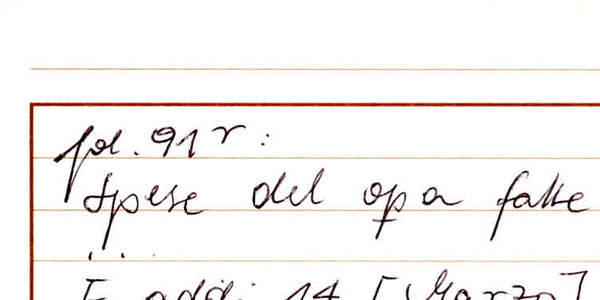 fol. 91 r :
Spese del opa fatte
...
E addi 14 [Marzo]